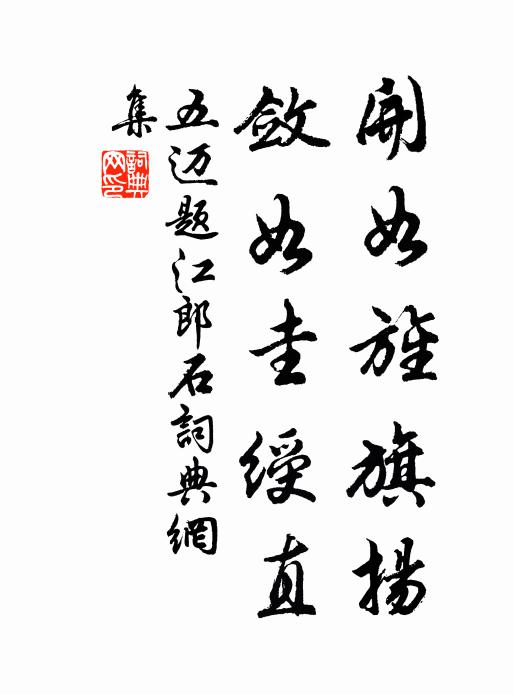 開如旌旗揚
斂如圭綬直
五迈题江郎石詞典網
集
詞典
网印